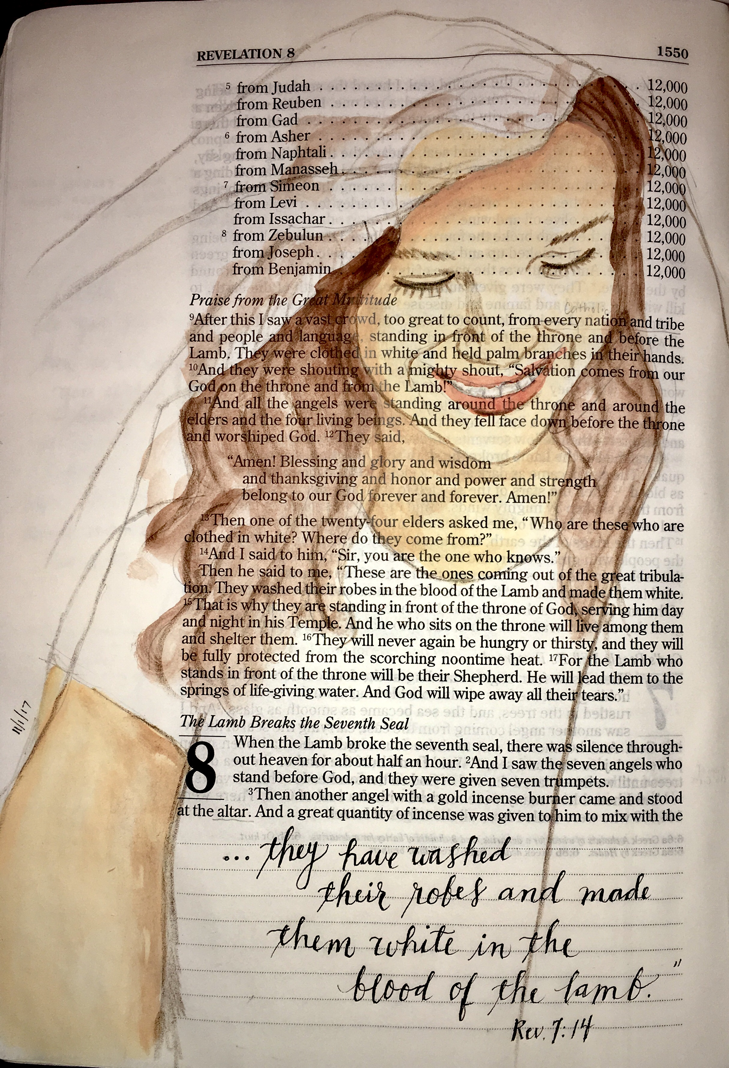 REVELATION 8 1550
5 from Judah . . . . . . . . . . . . . . . . . . . . . . . . . . . . . . . . . . . . . . . . 12,000
from Reuben . . . . . . . . . . . . . . . . . . . . . . . . . . . . . . . . . . . . . . . 12,000
from Gad . . . . . . . . . . . . . . . . . . . . . . . . . . . . . . . . . . . . . . . . . . 12,000
6 from Asher . . . . . . . . . . . . . . . . . . . . . . . . . . . . . . . . . . . . . . . . 12,000
from Naphtali . . . . . . . . . . . . . . . . . . . . . . . . . . . . . . . . . . . . . . 12,000
from Manasseh . . . . . . . . . . . . . . . . . . . . . . . . . . . . . . . . . . . . . 12,000
7 from Simeon . . . . . . . . . . . . . . . . . . . . . . . . . . . . . . . . . . . . . . . 12,000
from Levi . . . . . . . . . . . . . . . . . . . . . . . . . . . . . . . . . . . . . . . . . . 12,000
from Issachar . . . . . . . . . . . . . . . . . . . . . . . . . . . . . . . . . . . . . . 12,000
8 from Zebulun . . . . . . . . . . . . . . . . . . . . . . . . . . . . . . . . . . . . . . 12,000
from Joseph . . . . . . . . . . . . . . . . . . . . . . . . . . . . . . . . . . . . . . . . 12,000
from Benjamin . . . . . . . . . . . . . . . . . . . . . . . . . . . . . . . . . . . . . 12,000
Praise from the Great Multitude
9After this I saw a vast crowd, too great to count, from every nation and tribe
and people and language, standing in front of the throne and before the
Lamb. They were clothed in white and held palm branches in their hands.
10And they were shouting with a mighty shout, “Salvation comes from our
God on the throne and from the Lamb!”
11And all the angels were standing around the throne and around the
elders and the four living beings. And they fell face down before the throne
and worshiped God. 12They said,
“Amen! Blessing and glory and wisdom
and thanksgiving and honor and power and strength
belong to our God forever and forever. Amen!”
13Then one of the twenty-four elders asked me, “Who are these who are
clothed in white? Where do they come from?”
14And I said to him, “Sir, you are the one who knows.”
Then he said to me, “These are the ones coming out of the great tribula-
tion. They washed their robes in the blood of the Lamb and made them white.
15That is why they are standing in front of the throne of God, serving him day
and night in his Temple. And he who sits on the throne will live among them
and shelter them. 16They will never again be hungry or thirsty, and they will
be fully protected from the scorching noontime heat. 17For the Lamb who
stands in front of the throne will be their Shepherd. He will lead them to the
springs of life-giving water. And God will wipe away all their tears.”
The Lamb Breaks the Seventh Seal
8 When the Lamb broke the seventh seal, there was silence through-
out heaven for about half an hour. 2And I saw the seven angels who
stand before God, and they were given seven trumpets.
3Then another angel with a gold incense burner came and stood
at the altar. And a great quantity of incense was given to him to mix with the
... they have washed
their robes and made
them white in the
blood of the lamb."
Rev. 7:14
11/1/17